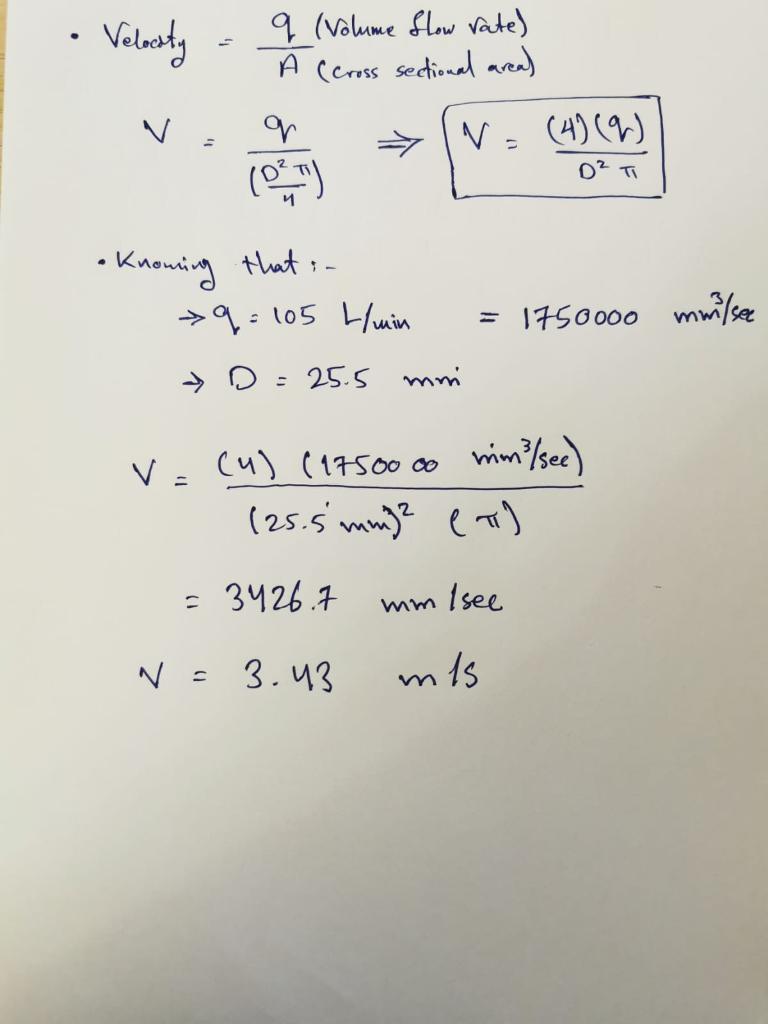 • Velocity = q (Volume flow rate) / A (cross sectional area)
V = q / (D² π / 4) ⇒ V = (4)(q) / D² π
• Knowing that :-
→ q = 105 L/min = 1750000 mm³/sec
→ D = 25.5 mm
V = (4) (1750000 mm³/sec) / (25.5 mm)² (π)
= 3426.7 mm/sec
V = 3.43 m/s